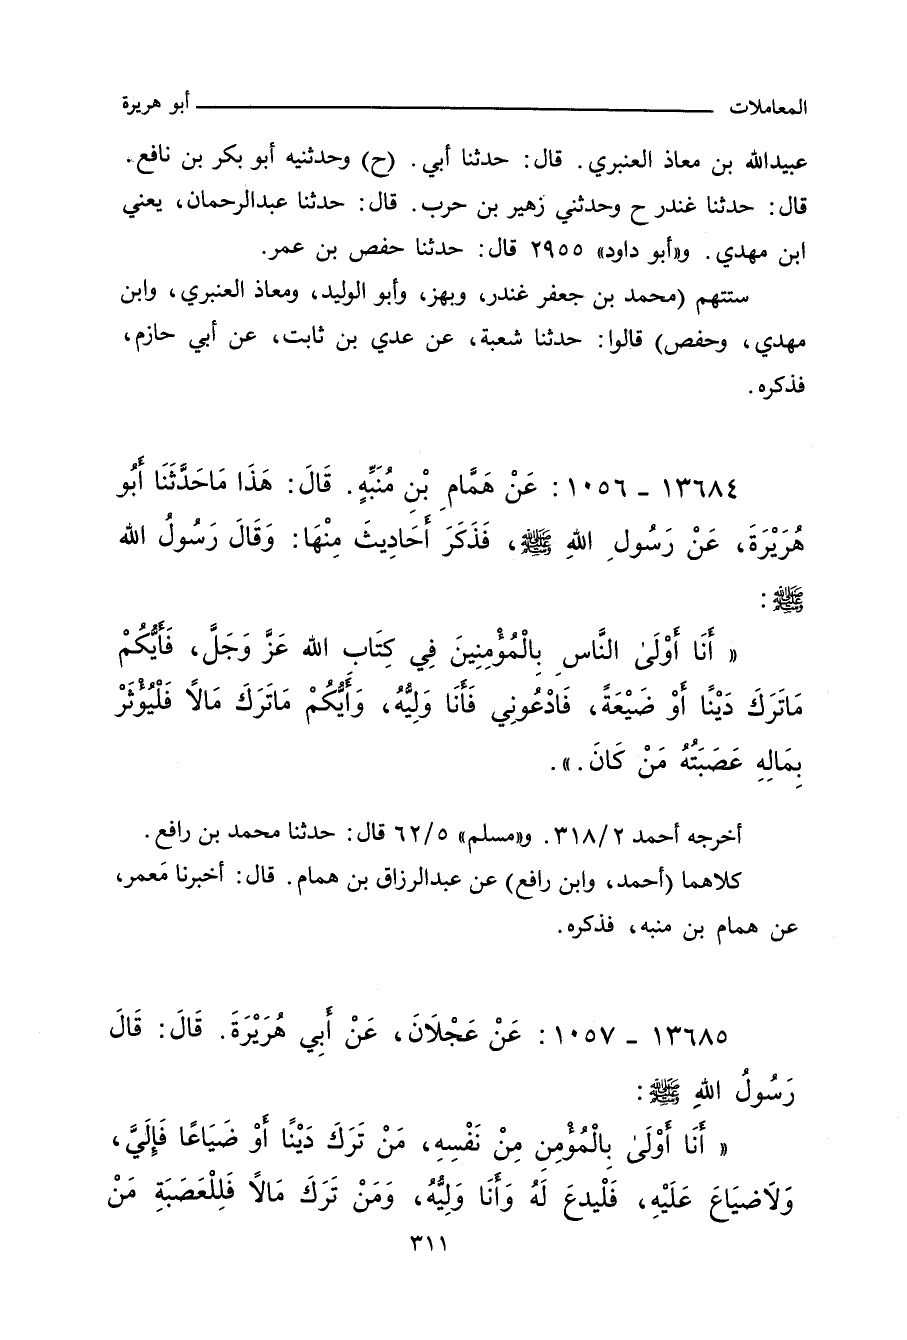 المعاملات ــــــــــــ أبو هريرة
عبيدالله بن معاذ العنبري. قال: حدثنا أبي. (ح) وحدثنيه أبو بكر بن نافع.
قال: حدثنا غندر ح وحدثني زهير بن حرب. قال: حدثنا عبدالرحمان، يعني
ابن مهدي. و«أبو داود» ٢٩٥٥ قال: حدثنا حفص بن عمر.
ستتهم (محمد بن جعفر غندر، وبهز، وأبو الوليد، ومعاذ العنبري، وابن
مهدي، وحفص) قالوا: حدثنا شعبة، عن عدي بن ثابت، عن أبي حازم،
فذكره.
١٣٦٨٤ ـ ١٠٥٦: عَنْ هَمَّامِ بْنِ مُنَبِّهٍ. قَالَ: هَذَا مَاحَدَّثَنَا أَبُو
هُرَيْرَةَ، عَنْ رَسُولِ اللهِ ﷺ، فَذَكَرَ أَحَادِيثَ مِنْهَا: وَقَالَ رَسُولُ الله
ﷺ:
« أَنَا أَوْلَىٰ النَّاسِ بِالْمُؤْمِنِينَ فِي كِتَابِ الله عَزَّ وَجَلَّ، فَأَيُّكُمْ
مَاتَرَكَ دَيْنًا أَوْ ضَيْعَةً، فَادْعُونِي فَأَنَا وَلِيُّهُ، وَأَيُّكُمْ مَاتَرَكَ مَالاً فَلْيُؤْثَرْ
بِمَالِهِ عَصَبَتُهُ مَنْ كَانَ.».
أخرجه أحمد ٣١٨/٢. و«مسلم» ٦٢/٥ قال: حدثنا محمد بن رافع.
كلاهما (أحمد، وابن رافع) عن عبدالرزاق بن همام. قال: أخبرنا مَعمر،
عن همام بن منبه، فذكره.
١٣٦٨٥ ـ ١٠٥٧: عَنْ عَجْلَانَ، عَنْ أَبِي هُرَيْرَةَ. قَالَ: قَالَ
رَسُولُ اللهِ ﷺ:
« أَنَا أَوْلَىٰ بِالْمُؤْمِنِ مِنْ نَفْسِهِ، مَنْ تَرَكَ دَيْنًا أَوْ ضَيَاعًا فَإِلَيَّ،
وَلَاضيَاعَ عَلَيْهِ، فَلْيدعَ لَهُ وَأَنَا وَلِيُّهُ، وَمَنْ تَرَكَ مَالًا فَلِلْعَصَبَةِ مَنْ
٣١١